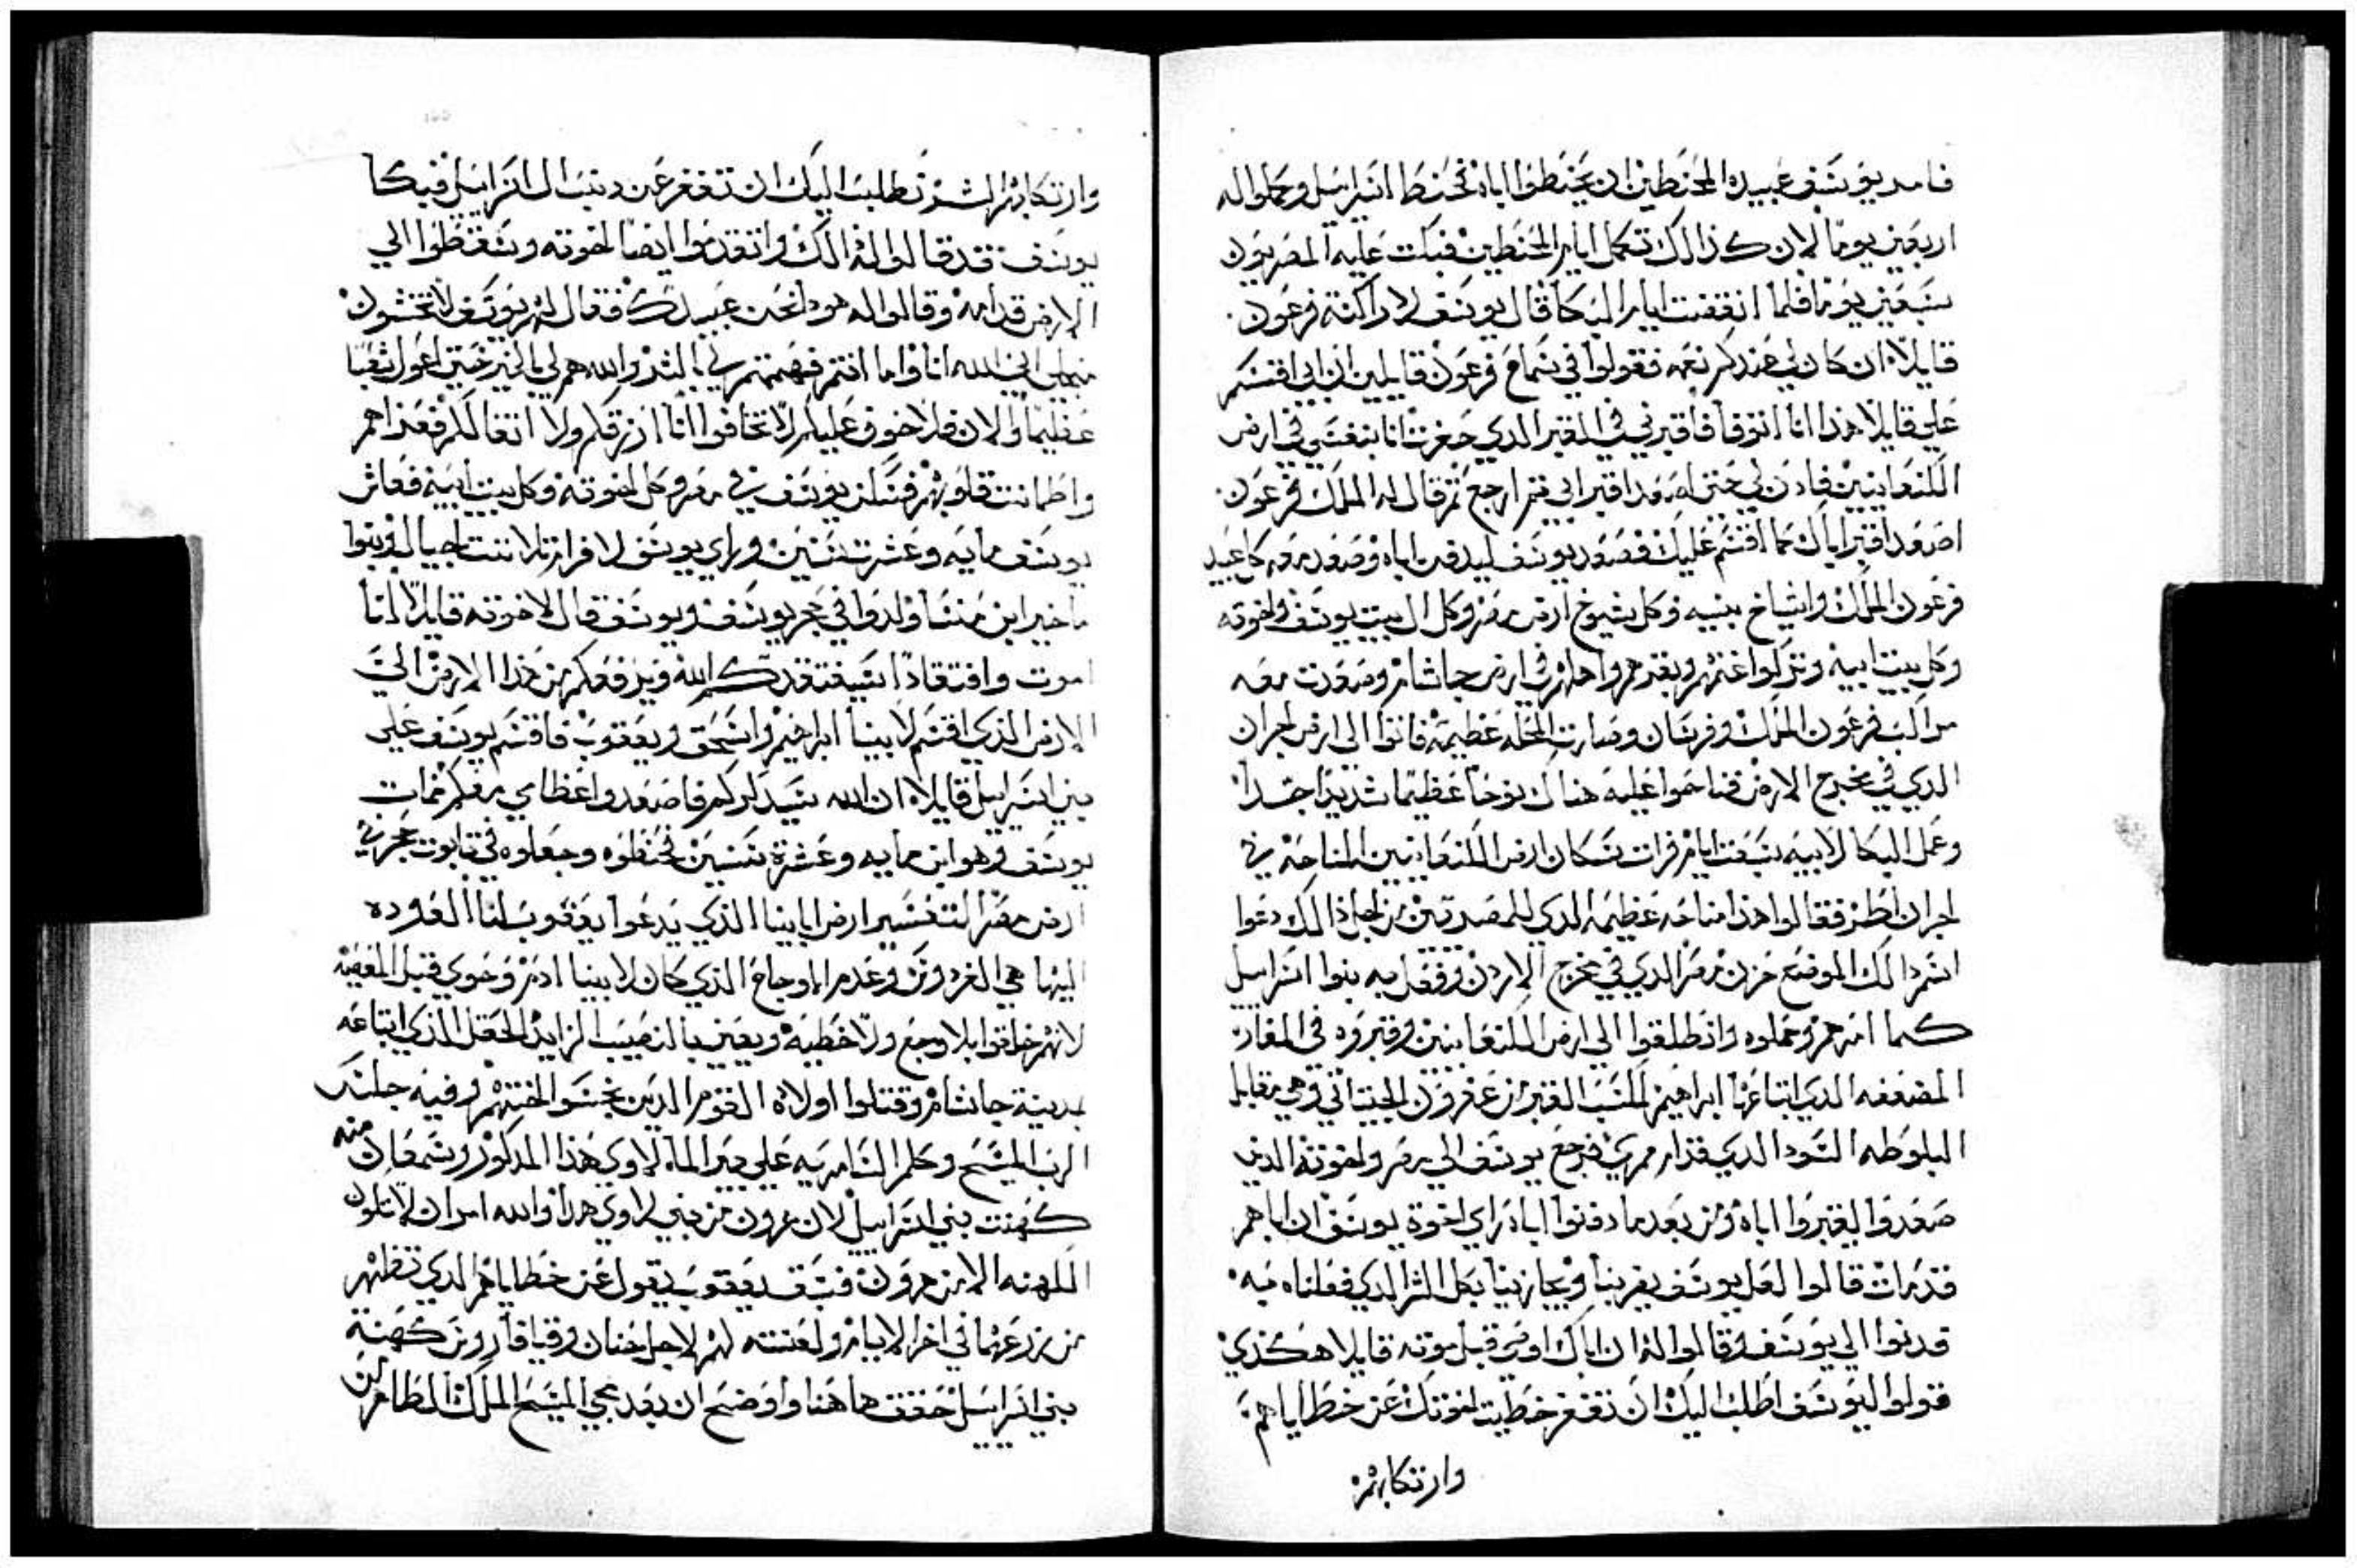 فامر يوسف عبيده المحنطين ان يحنطوا اباه فحنطا اسراييل وحملوا له
اربعين يوماً لان كذالك تكمل ايام المحنطين فبكت عليه المصريون
سبعين يوماً فلما انقضت ايام البكا قال يوسف لاراكنة فرعون
قايلاً ان كان لي عندكم نعمه فقولوا في سماع فرعون قايلين ان ابي اقسم
علي قايلاً هذا انا اتوفا فاقبرني في القبر الدي حفرت انا بنفسي في ارض
الكنعانيين فادن لي حتى اصعد اقبر ابي ثم ارجع ثم قال له الملك فرعون
اصعد اقبر اباك كما اقسم عليك فصعد يوسف ليدفن اباه وصعد معه كل عبيد
فرعون الملك واشياخ بيته وكل شيوخ ارض مصر وكل ال بيت يوسف واخوته
وكل بيت ابيه وتركوا غنمهم وبقرهم واهلهم في ارض جاشام وصعدت معه
مراكب فرعون الملك وفرسان وصارت المحله عظيمة فاتوا الي ارض اجران
الدي في مخرج الارض فناحوا عليه هناك نوحاً عظيماً شديداً جداً
وعمل البكا لابيه سبعت ايام فرات سكان ارض الكنعانيين المناحة في
اجران اطر فقالوا هذا مناحه عظيمه الدي للمصريين من اجل ذالك دعوا
اسم ذالك الموضع حزن مصر الدي في مخرج الاردن وفعل به بنوا اسراييل
كما امرهم وحملوه وانطلقوا الي ارض الكنعانيين وقبروه في المغارة
المضعفه الدي ابتاعها ابراهيم لكسب القبر من عفرون الحيتاني وهي مقابل
البلوطه السودا الدي قدام ممري فرجع يوسف الي مصر واخوته الدين
صعدوا ليقبروا اباه ومن بعد ما دفنوا اباه راي اخوة يوسف ان اباهم
قد مات قالوا لعل يوسف يضربنا ويجازينا بكل الشر الدي فعلناه به
فدنوا الي يوسف وقالوا له ان اباك اوصى قبل موته قايلا هكذي
قولوا ليوسف اطلب اليك ان تغفر خطيت اخوتك عن خطاياهم
وارتكابهم
وارتكابهم الشر نطلب اليك ان تغفر عن دنب ال اسراييل فبكا
يوسف قد قالوا له ذالك واتقدموا ايضاً اخوته وسقطوا الي
الارض قدامه وقالوا له هودا نحن عبيدك فقال لهم يوسف لا تخشون
اني الله انا واما انتم فهممتم في بالشر والله هم لي بالخير حتي اعول شعباً
عظيماً والان فلا خوف عليكم لا تخافوا انا ارزقكم ولا اتغافلكم فعزاهم
واطمانت قلوبهم فسكن يوسف في مصر وكل اخوته وكل بيت ابيه فعاش
يوسف مايه وعشرت سنين وراي يوسف لافرام تلاتت اجيال وبنوا
ماخير ابن منسا ولدوا في حجر يوسف ويوسف قال لاخوته قايلاً انا
اموت وافتقاداً سيفتقدكم الله ويرفعكم من هذا الارض الي
الارض الذي اقسم لابينا ابراهيم واسحق ويعقوب فاقسم يوسف على
بني اسراييل قايلاً ان الله سيدكركم فاصعدوا عظامي معكم فمات
يوسف وهو ابن مايه وعشرة سنين فحنطوه وجعلوه في تابوت حجر في
ارض مصر التفسير ارض ابايينا الذي يدعوا يعقوب لنا العوده
اليها هي الفردوس وعدم الاوجاع الذي كان لابينا ادم وحوي قبل المعصيه
لانهم خلقوا بلا وجع ولا خطيه ويعين بالنصيب الزايد الحقل الذي ابتاعه
بمدينة جاشام وقتلوا اولاده القوم الدين نجسوا اختهم وفيه جلس
الرب المسيح وكلم السامريه على بير الما لاوي هذا المدكور وشمعان منه
كهنت بني اسراييل لان هرون من بني لاوي هدا والله امر ان لا تكون
الكهنه الا من هرون فسبق يعقوب يقول عن خطاياهم الدي تظهر
من زرعهما في اخر الايام ولعنته لهم لاجل حنان وقيافا روس كهنة
بني اسراييل حققت هاهنا واوضح ان بعد مجي المسيح الملك الطاهر لن